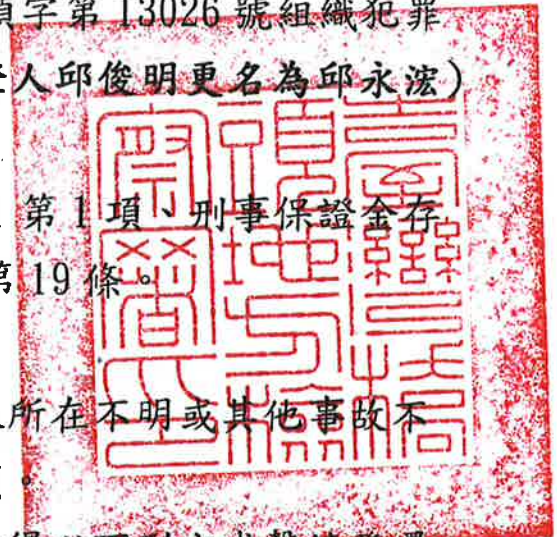 字第 13026 號組織犯罪
人邱俊明更名為邱永浤)
第 1 項、刑事保證金存
第 19 條。
所在不明或其他事故不
。
臺灣橋
頭地方檢
察署印